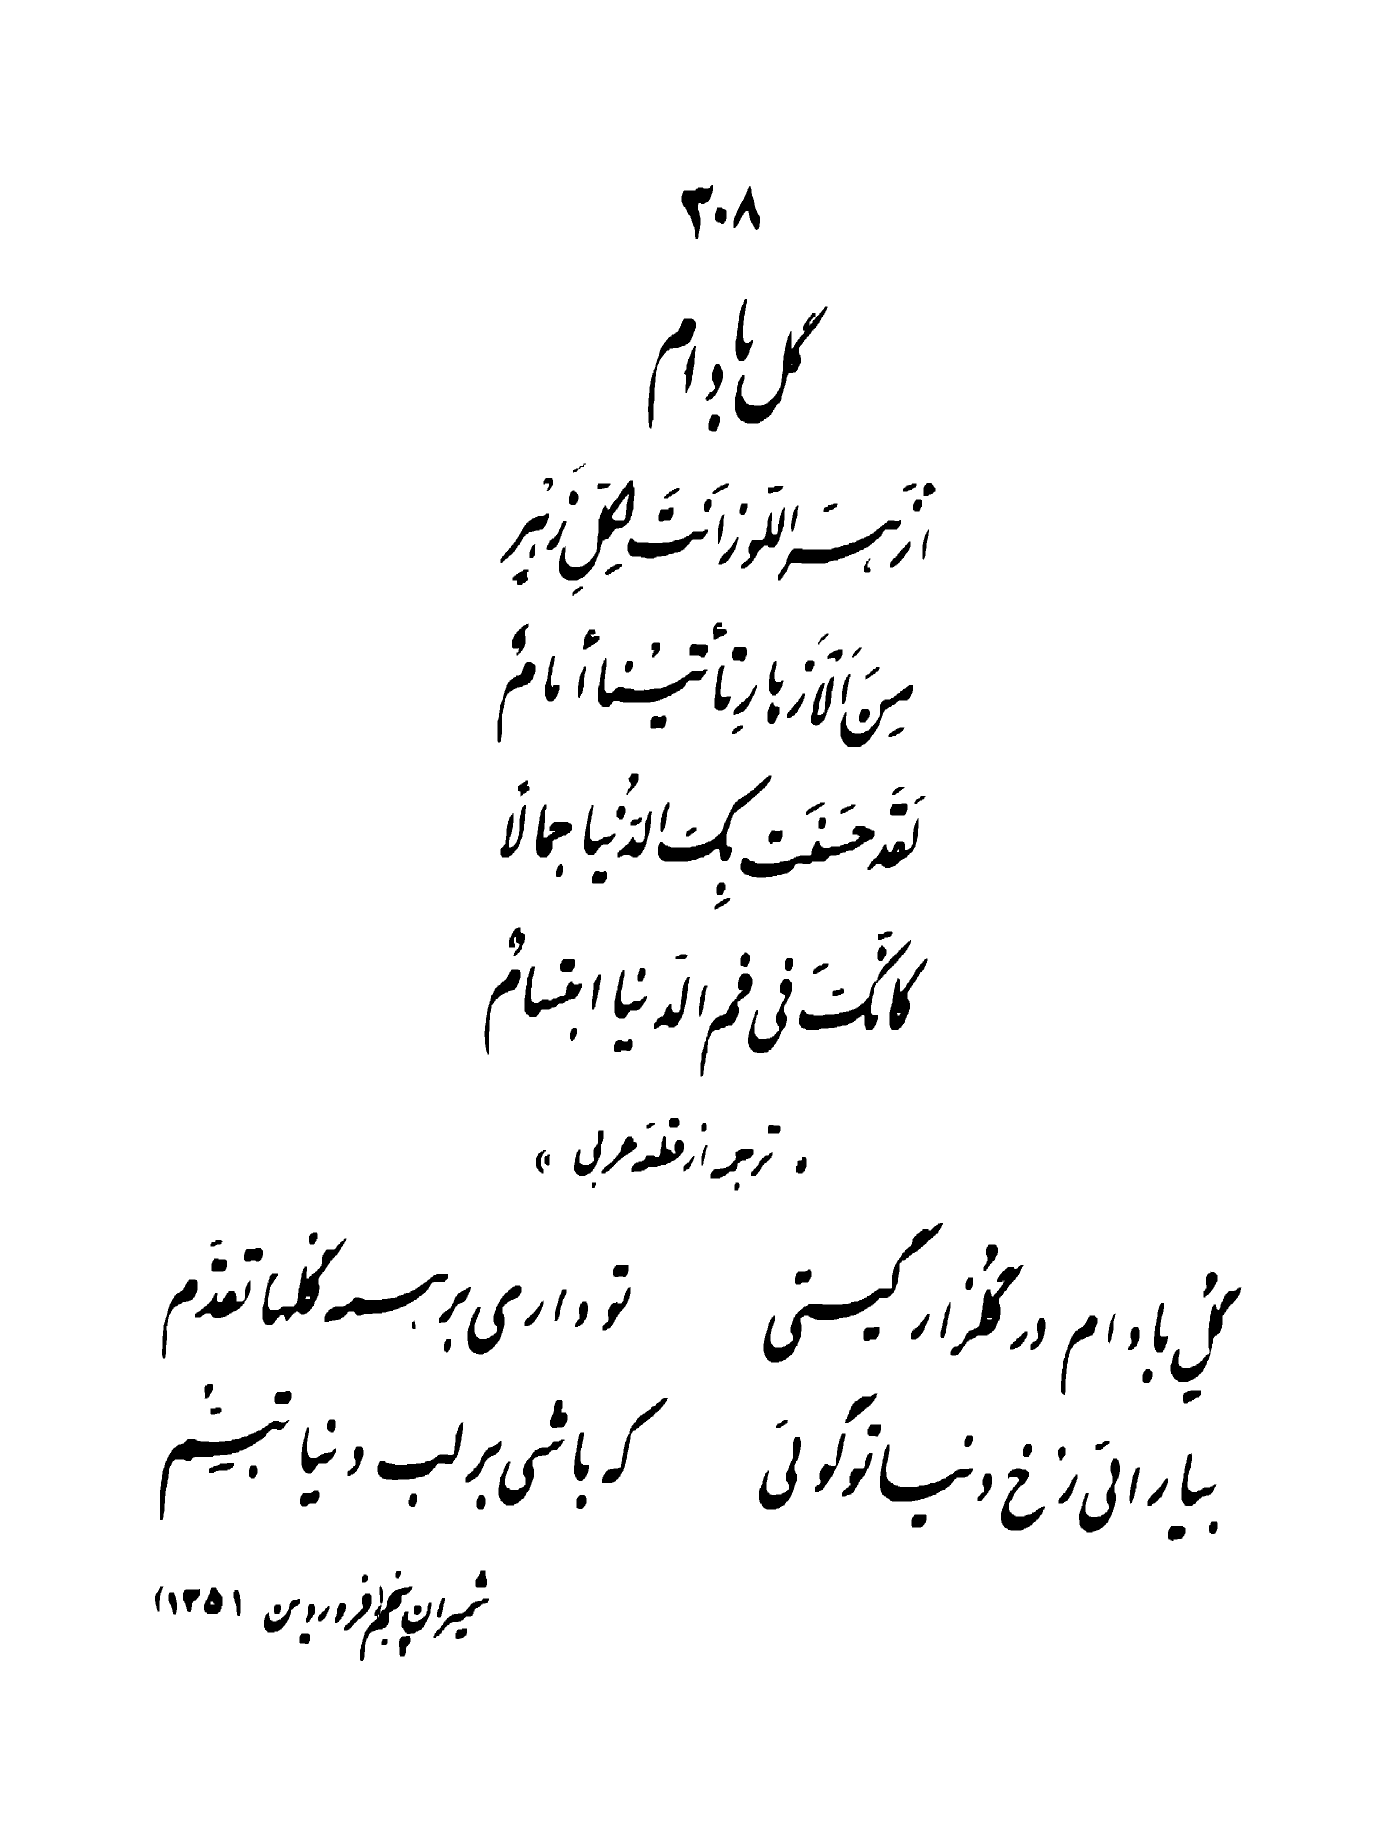 ۳۰۸
گل بادام
أزهَرَ اللَّوز اَنتَ لِکلِّ زَهرٍ
مِنَ الاَزهارِ تأتینا أمامٌ
لَقَد حَسُنَت بِکَ الدُنیا جمالاً
کانَّکَ فی فم الدّنیا ابتسامٌ
« ترجمه از قطعه عربی »
گلِ بادام در گلزار گیتی تو داری بر همه گلها تقدّم
بیارائی رخ دنیا تو گوئی که باشی بر لب دنیا تبسّم
شمیران پنجم فروردین ۱۳۵۱)